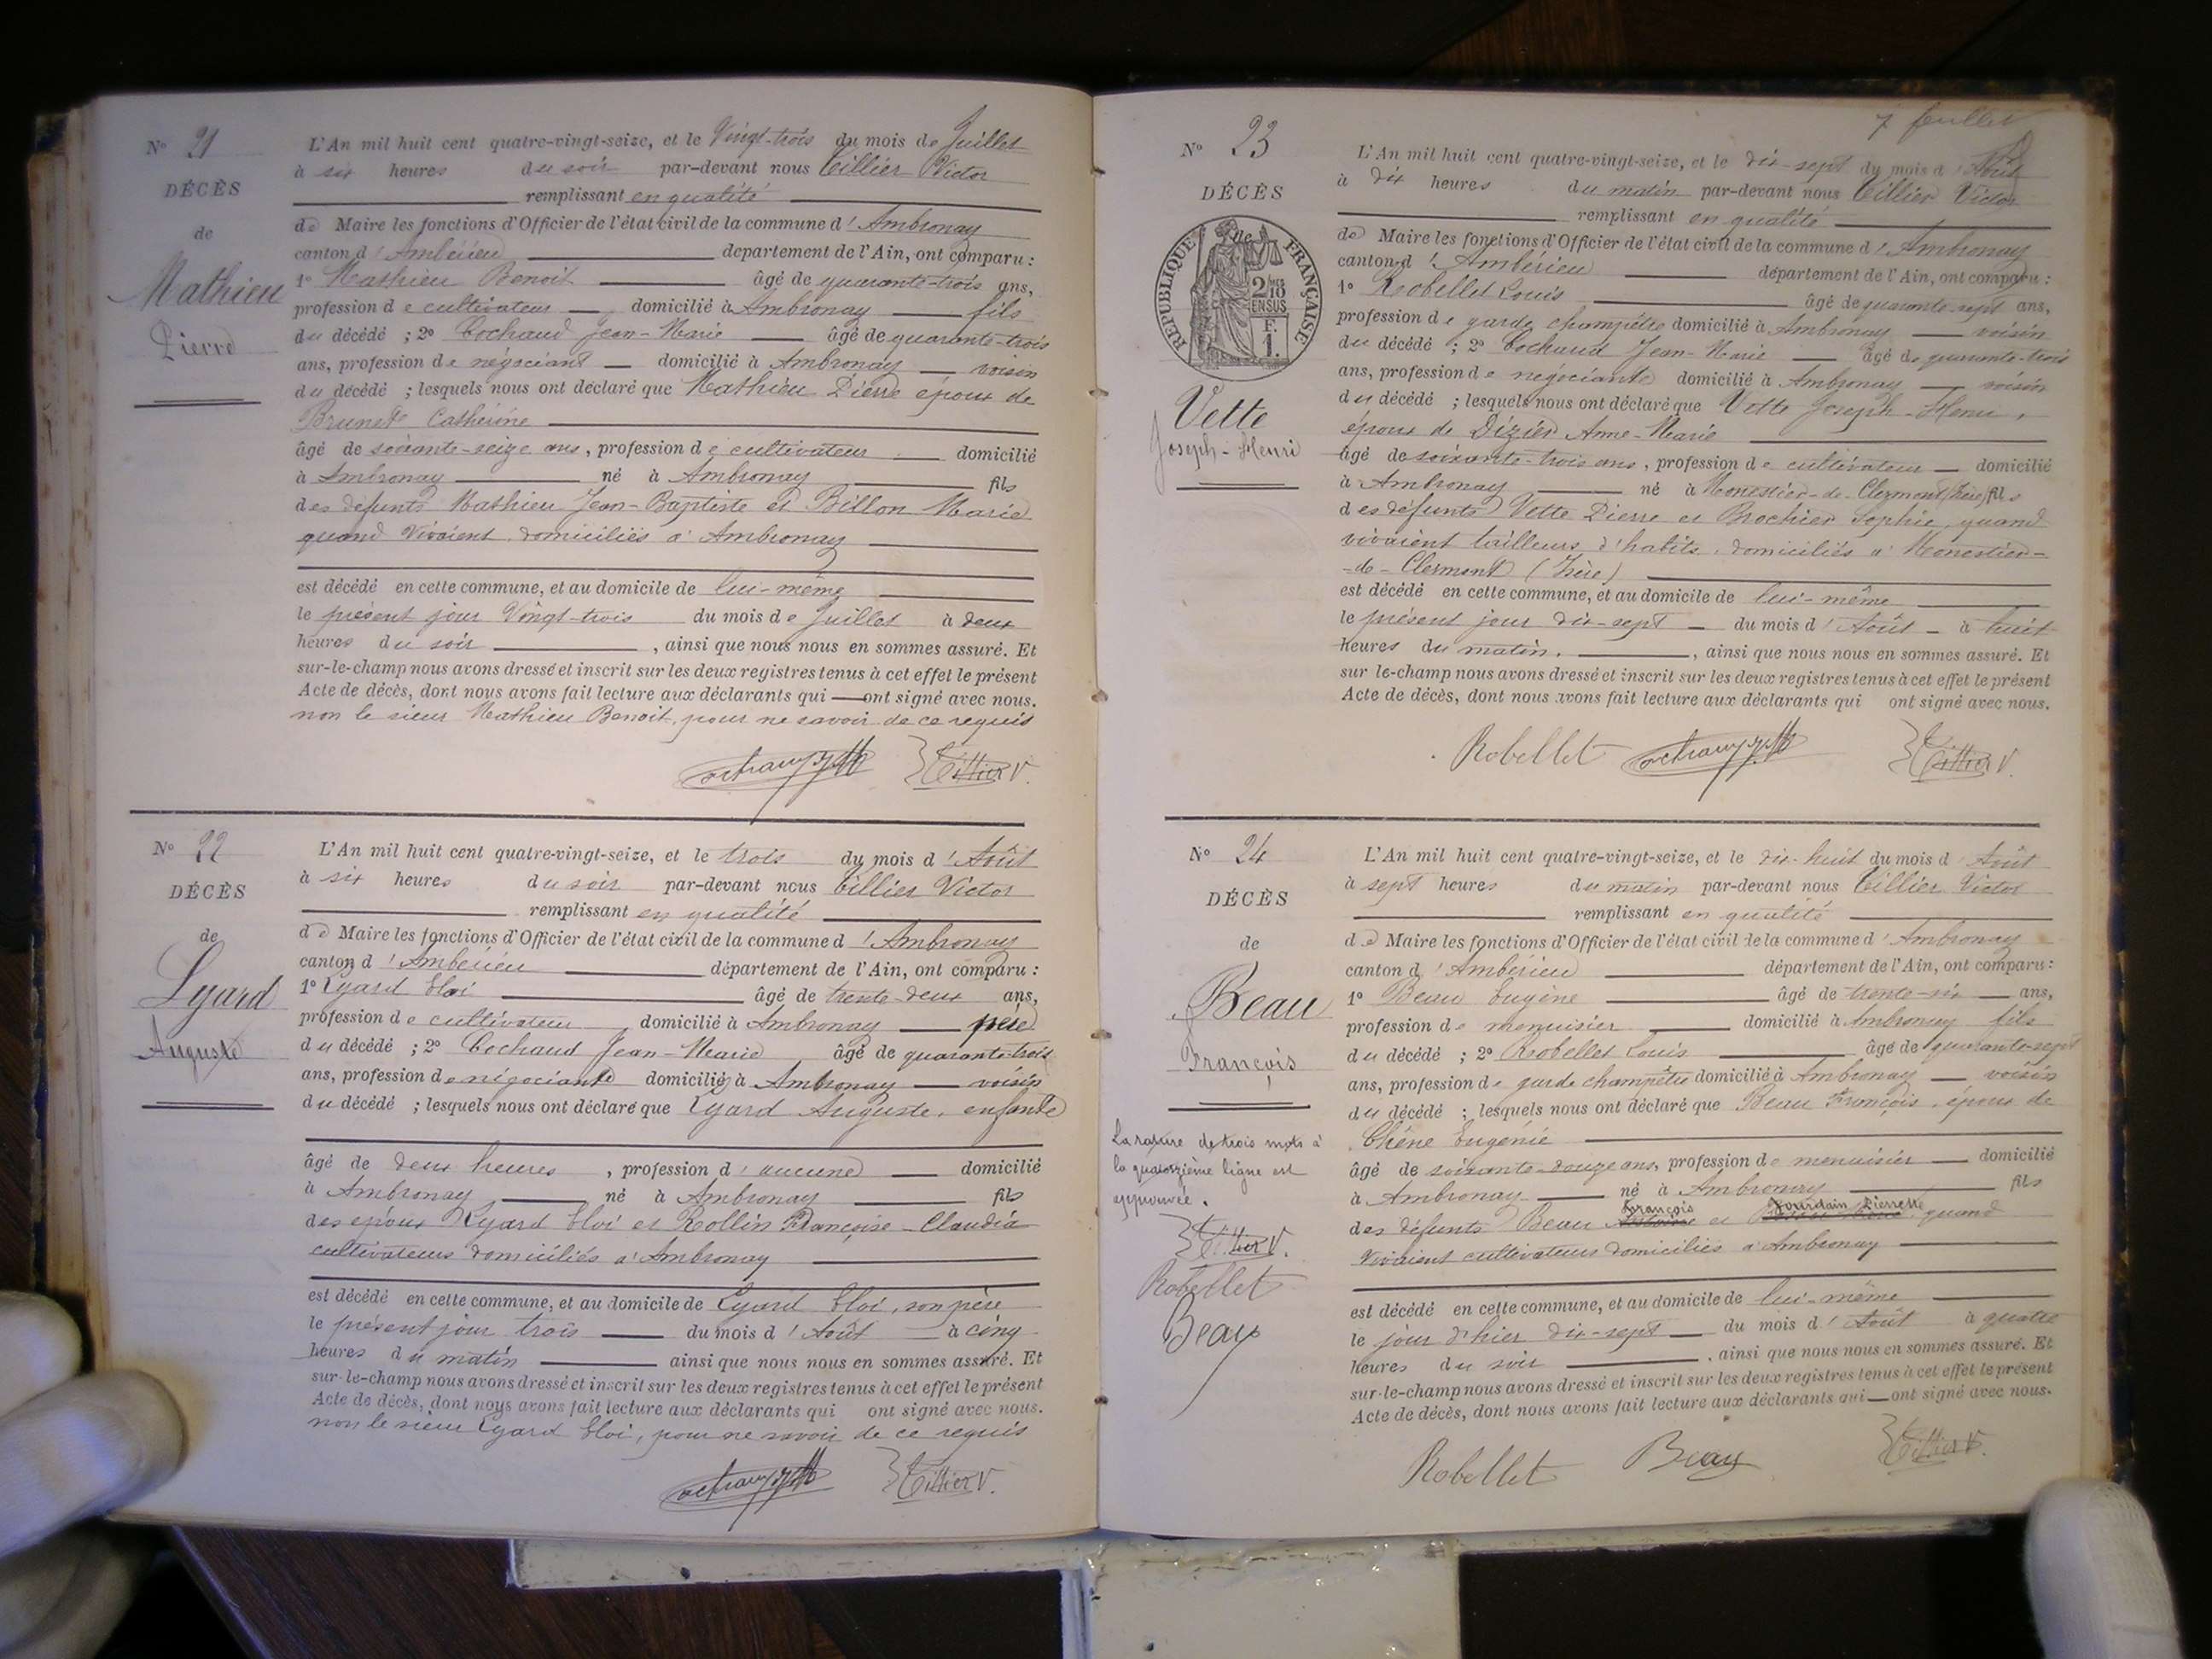 N° 21
DÉCÈS
de
Mathieu
Pierre
L'An mil huit cent quatre-vingt-seize, et le Vingt-trois du mois de Juillet
à six heures du soir par-devant nous Tillier Victor
remplissant en qualité
de Maire les fonctions d'Officier de l'état civil de la commune d'Ambronay
canton d'Ambérieu département de l'Ain, ont comparu :
1° Mathieu Benoit âgé de quarante-trois ans,
profession de cultivateur domicilié à Ambronay fils
du décédé ; 2° Cochaud Jean-Marie âgé de quarante-trois
ans, profession de négociant domicilié à Ambronay voisin
du décédé ; lesquels nous ont déclaré que Mathieu Pierre époux de
Brunet Catherine
âgé de soixante-seize ans, profession de cultivateur domicilié
à Ambronay né à Ambronay fils
des défunts Mathieu Jean-Baptiste et Billon Marie
quand vivaient domiciliés à Ambronay
est décédé en cette commune, et au domicile de lui-même
le présent jour Vingt-trois du mois de Juillet à deux
heures du soir , ainsi que nous nous en sommes assuré. Et
sur-le-champ nous avons dressé et inscrit sur les deux registres tenus à cet effet le présent
Acte de décès, dont nous avons fait lecture aux déclarants qui ont signé avec nous.
non le sieur Mathieu Benoit, pour ne savoir de ce requis
Tillier V.
N° 22
DÉCÈS
de
Lyard
Auguste
L'An mil huit cent quatre-vingt-seize, et le trois du mois d'Août
à six heures du soir par-devant nous Tillier Victor
remplissant en qualité
de Maire les fonctions d'Officier de l'état civil de la commune d'Ambronay
canton d'Ambérieu département de l'Ain, ont comparu :
1° Lyard Eloi âgé de trente-deux ans,
profession de cultivateur domicilié à Ambronay père
du décédé ; 2° Cochaud Jean-Marie âgé de quarante-trois
ans, profession de négociant domicilié à Ambronay voisin
du décédé ; lesquels nous ont déclaré que Lyard Auguste, enfant
âgé de deux heures , profession d'aucune domicilié
à Ambronay né à Ambronay fils
des époux Lyard Eloi et Rollin Françoise-Claudia
cultivateurs domiciliés à Ambronay
est décédé en cette commune, et au domicile de Lyard Eloi, son père
le présent jour trois du mois d'Août à cinq
heures du matin ainsi que nous nous en sommes assuré. Et
sur-le-champ nous avons dressé et inscrit sur les deux registres tenus à cet effet le présent
Acte de décès, dont nous avons fait lecture aux déclarants qui ont signé avec nous.
non le sieur Lyard Eloi, pour ne savoir de ce requis
Tillier V.
7 feuillet
N° 23
DÉCÈS
de
RÉPUBLIQUE FRANÇAISE
2 mes 18
EN SUS
F.
1.
Vette
Joseph-Henri
L'An mil huit cent quatre-vingt-seize, et le dix-sept du mois d'Août
à dix heures du matin par-devant nous Tillier Victor
remplissant en qualité
de Maire les fonctions d'Officier de l'état civil de la commune d'Ambronay
canton d'Ambérieu département de l'Ain, ont comparu :
1° Robellet Louis âgé de quarante-sept ans,
profession de garde champêtre domicilié à Ambronay voisin
du décédé ; 2° Cochaud Jean-Marie âgé de quarante-trois
ans, profession de négociant domicilié à Ambronay voisin
du décédé ; lesquels nous ont déclaré que Vette Joseph-Henri,
époux de Dizier Anne-Marie
âgé de soixante-trois ans, profession de cultivateur domicilié
à Ambronay né à Monestier-de-Clermont (Isère) fils
des défunts Vette Pierre et Brochier Sophie, quand
vivaient tailleurs d'habits, domiciliés à Monestier-
-de-Clermont (Isère)
est décédé en cette commune, et au domicile de lui-même
le présent jour dix-sept du mois d'Août à huit
heures du matin. , ainsi que nous nous en sommes assuré. Et
sur le-champ nous avons dressé et inscrit sur les deux registres tenus à cet effet le présent
Acte de décès, dont nous avons fait lecture aux déclarants qui ont signé avec nous.
Robellet Tillier V.
N° 24
DÉCÈS
de
Beau
François
La rature de trois mots à
la quatorzième ligne est
approuvée.
Tillier V.
Robellet
Beau
L'An mil huit cent quatre-vingt-seize, et le dix-huit du mois d'Août
à sept heures du matin par-devant nous Tillier Victor
remplissant en qualité
de Maire les fonctions d'Officier de l'état civil de la commune d'Ambronay
canton d'Ambérieu département de l'Ain, ont comparu :
1° Beau Eugène âgé de trente-six ans,
profession de menuisier domicilié à Ambronay fils
du décédé ; 2° Robellet Louis âgé de quarante-sept
ans, profession de garde champêtre domicilié à Ambronay voisin
du décédé ; lesquels nous ont déclaré que Beau François, époux de
Chêne Eugénie
âgé de soixante-douze ans, profession de menuisier domicilié
à Ambronay né à Ambronay fils
François Jourdain Pierrette
des défunts Beau et quand
vivaient cultivateurs domiciliés à Ambronay
est décédé en cette commune, et au domicile de lui-même
le jour d'hier dix-sept du mois d'Août à quatre
heures du soir , ainsi que nous nous en sommes assuré. Et
sur-le-champ nous avons dressé et inscrit sur les deux registres tenus à cet effet le présent
Acte de décès, dont nous avons fait lecture aux déclarants qui ont signé avec nous.
Robellet Beau Tillier V.